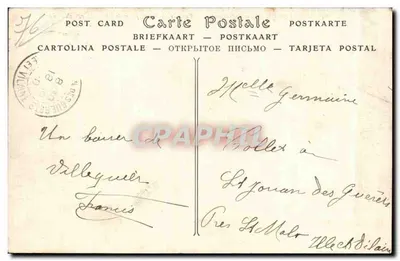 76
POST CARD Carte Postale POSTKARTE
BRIEFKAART — POSTKAART
CARTOLINA POSTALE — ОТКРЫТОЕ ПИСЬМО — TARJETA POSTAL
Un baiser de
Villequier
Francis
CPARAMA
Melle Germaine
à
St Jouan des Guérêts
Près St Malo
Ille et Vilaine